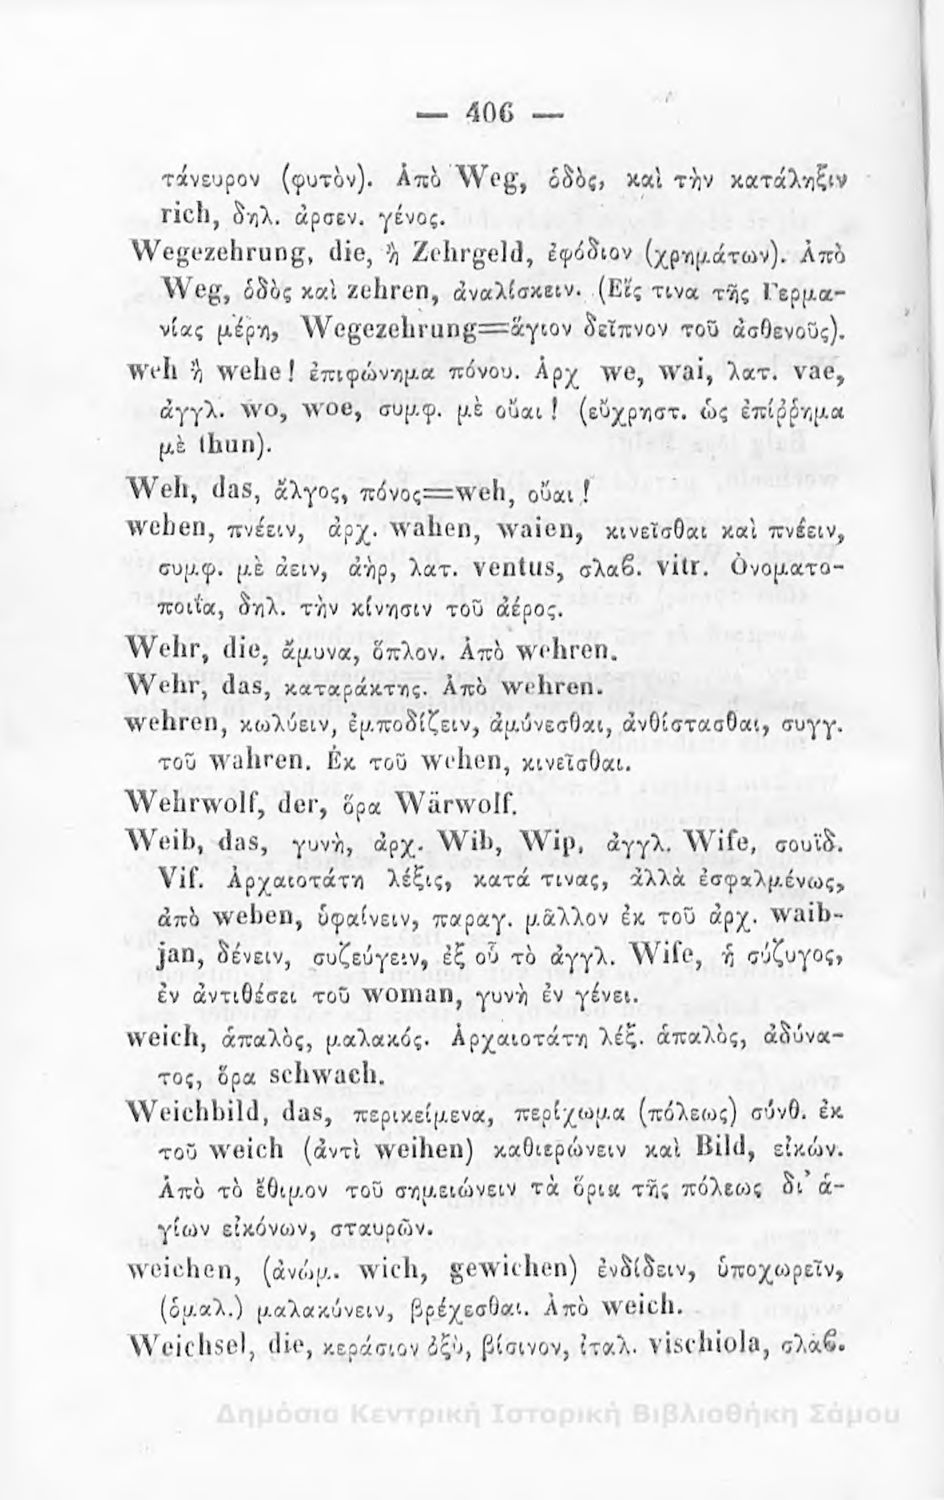 — 406 —
τάνευρον (φυτὸν). Ἀπὸ Weg, ὁδὸς, καὶ τὴν κατάληξιν
rich, δηλ. ἀρσεν. γένος.
Wegezehrung, die, ἢ Zehrgeld, ἐφόδιον (χρημάτων). Ἀπὸ
Weg, ὁδὸς καὶ zehren, ἀναλίσκειν. (Εἴς τινα τῆς Γερμα-
νίας μέρη, Wegezehrung=ἅγιον δεῖπνον τοῦ ἀσθενοῦς).
weh ἢ wehe! ἐπιφώνημα πόνου. Ἀρχ we, wai, λατ. vae,
ἀγγλ. wo, woe, συμφ. μὲ οὔαι! (εὔχρηστ. ὡς ἐπίῤῥημα
μὲ thun).
Weh, das, ἄλγος, πόνος=weh, οὔαι!
wehen, πνέειν, ἀρχ. wahen, waien, κινεῖσθαι καὶ πνέειν,
συμφ. μὲ ἀειν, ἀὴρ, λατ. ventus, σλαϐ. vitr. Ὀνοματο-
ποιΐα, δηλ. τὴν κίνησιν τοῦ ἀέρος.
Wehr, die, ἄμυνα, ὅπλον. Ἀπὸ wehren.
Wehr, das, καταράκτης. Ἀπὸ wehren.
wehren, κωλύειν, ἐμποδίζειν, ἀμύνεσθαι, ἀνθίστασθαι, συγγ.
τοῦ wahren. Ἐκ τοῦ wehen, κινεῖσθαι.
Wehrwolf, der, ὅρα Wärwolf.
Weib, das, γυνὴ, ἀρχ. Wib, Wip, ἀγγλ. Wife, σουϊδ.
Vif. Ἀρχαιοτάτη λέξις, κατά τινας, ἀλλὰ ἐσφαλμένως,
ἀπὸ weben, ὑφαίνειν, παραγ. μᾶλλον ἐκ τοῦ ἀρχ. waib-
jan, δένειν, συζεύγειν, ἐξ οὗ τὸ ἀγγλ. Wife, ἡ σύζυγος,
ἐν ἀντιθέσει τοῦ woman, γυνὴ ἐν γένει.
weich, ἁπαλὸς, μαλακός. Ἀρχαιοτάτη λέξ. ἁπαλὸς, ἀδύνα-
τος, ὅρα schwach.
Weichbild, das, περικείμενα, περίχωμα (πόλεως) σύνθ. ἐκ
τοῦ weich (ἀντὶ weihen) καθιερώνειν καὶ Bild, εἰκών.
Ἀπὸ τὸ ἔθιμον τοῦ σημειώνειν τὰ ὅρια τῆς πόλεως δι᾽ ἁ-
γίων εἰκόνων, σταυρῶν.
weichen, (ἀνώμ. wich, gewichen) ἐνδίδειν, ὑποχωρεῖν,
(ὁμαλ.) μαλακύνειν, βρέχεσθαι. Ἀπὸ weich.
Weichsel, die, κεράσιον ὀξὺ, βίσινον, ἰταλ. vischiola, σλαϐ.
Δημόσια Κεντρική Ιστορική Βιβλιοθήκη Σάμου